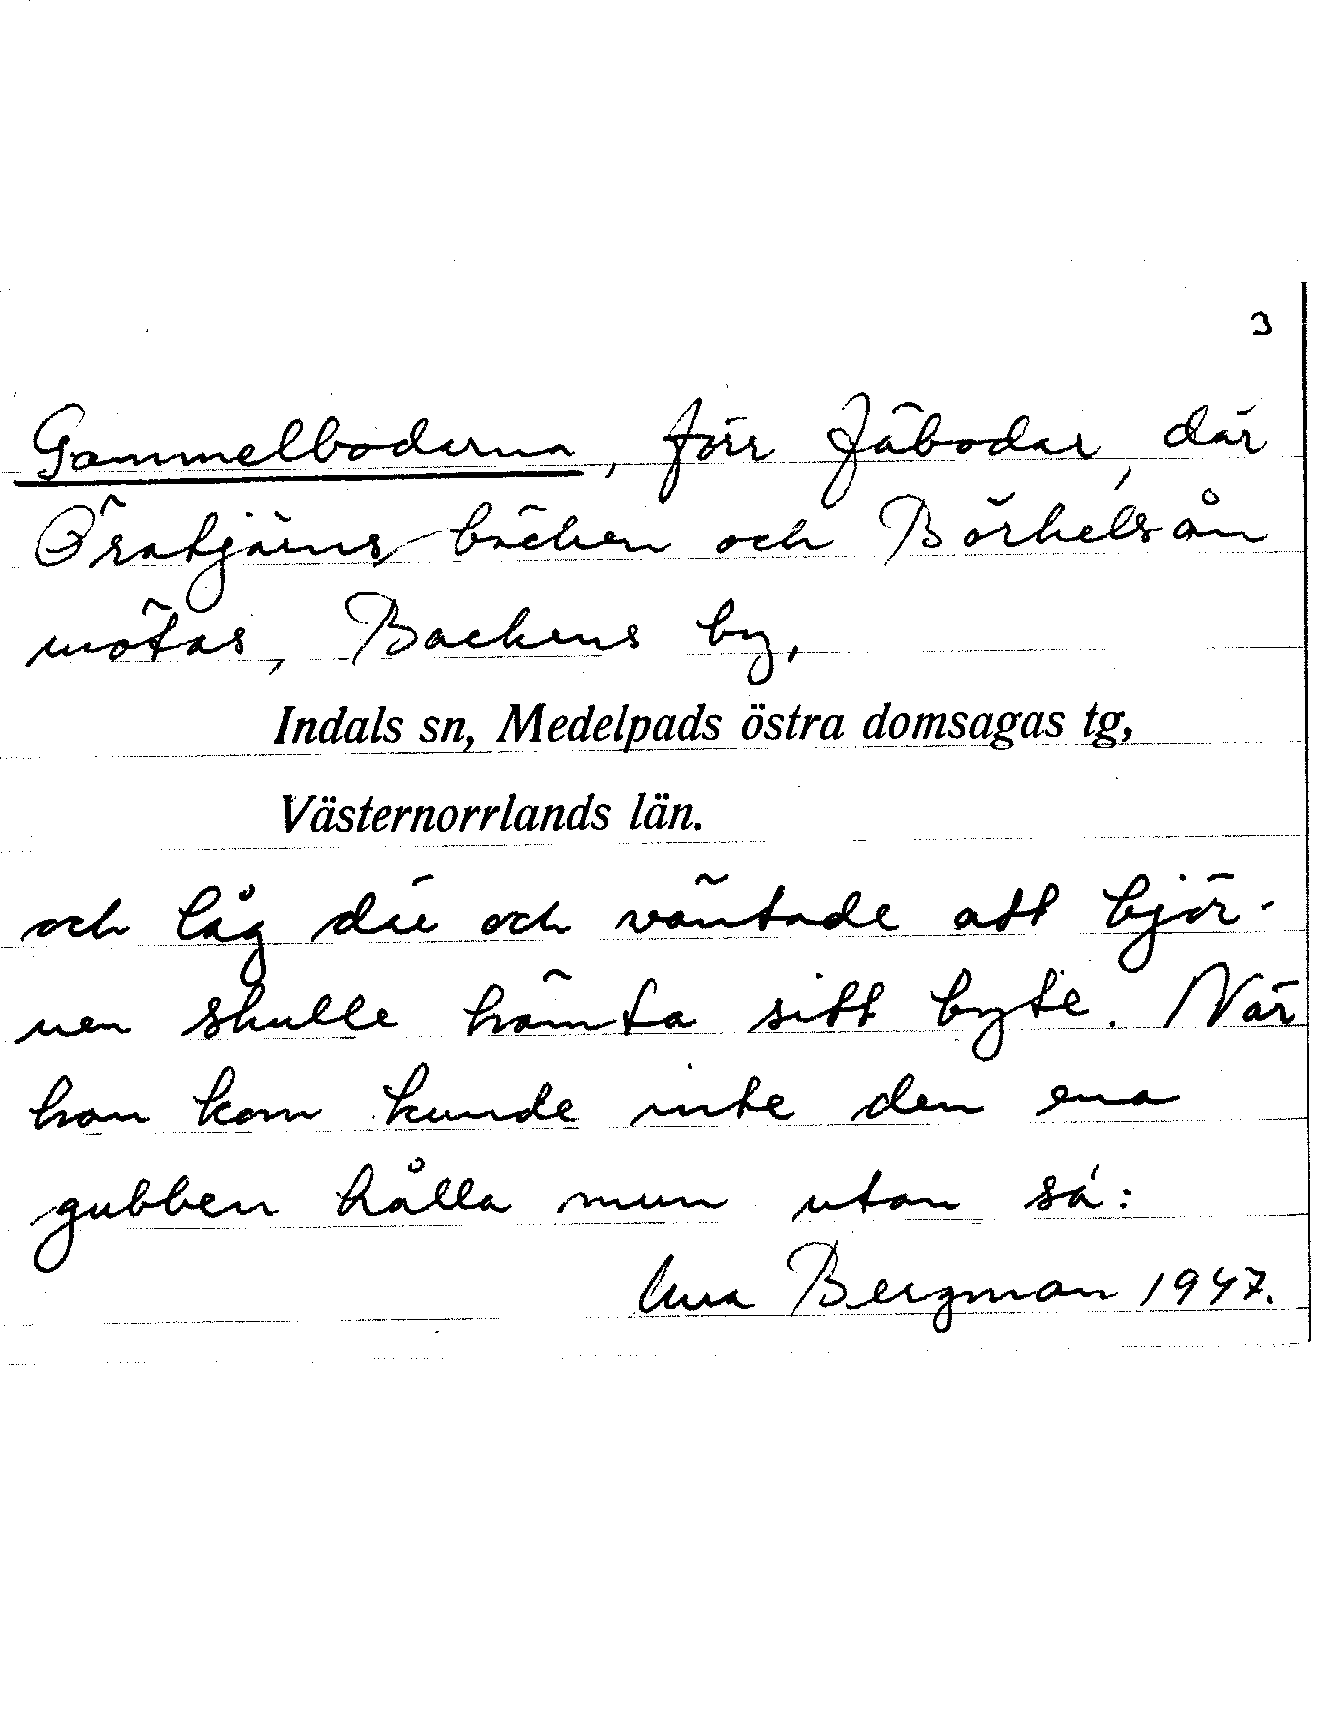 3
Gammelbodarna, förr fäbodar, där
Öratjärnsbäcken och Börhelsån
mötas, Backens by,
Indals sn, Medelpads östra domsagas tg,
Västernorrlands län.
och låg där och väntade att björ-
nen skulle hämta sitt byte. När
han kom kunde inte den ena
gubben hålla mun utan sá:
Bergman 1947.